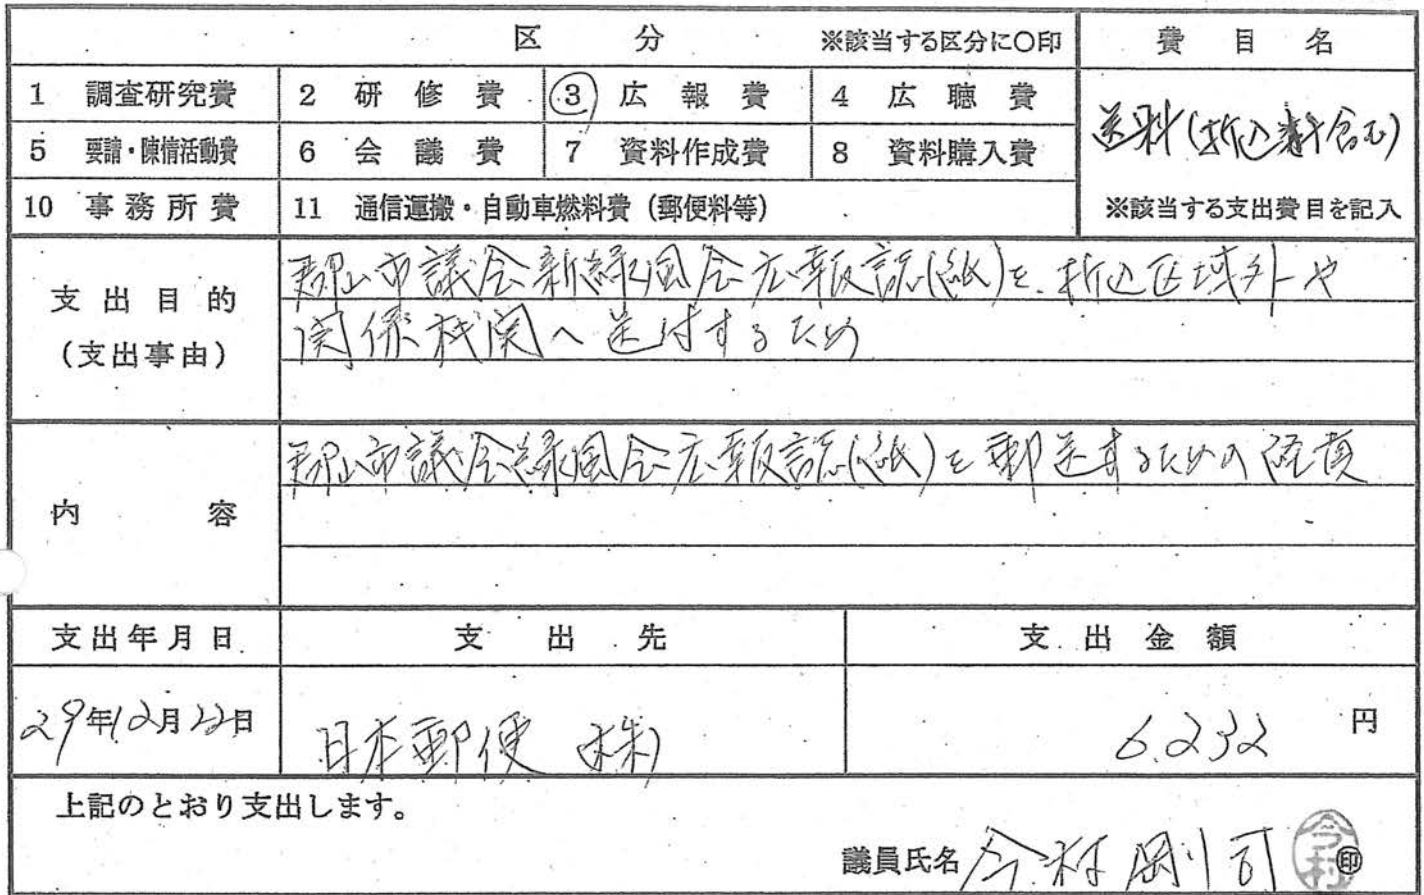 区 分 ※該当する区分に○印 費 目 名
1 調査研究費 2 研 修 費 ③ 広 報 費 4 広 聴 費
送料(折込料含む)
5 要請・陳情活動費 6 会 議 費 7 資料作成費 8 資料購入費
10 事 務 所 費 11 通信運搬・自動車燃料費(郵便料等) ※該当する支出費目を記入
支 出 目 的
(支出事由)
郡山市議会新緑風会広報誌(紙)を、折込区域外や
関係機関へ送付するため
内 容
郡山市議会緑風会広報誌(紙)を郵送するための経費
支出年月日 支 出 先 支 出 金 額
29年12月22日 日本郵便 (株) 6,232 円
上記のとおり支出します。
議員氏名 今村剛司 印
今村